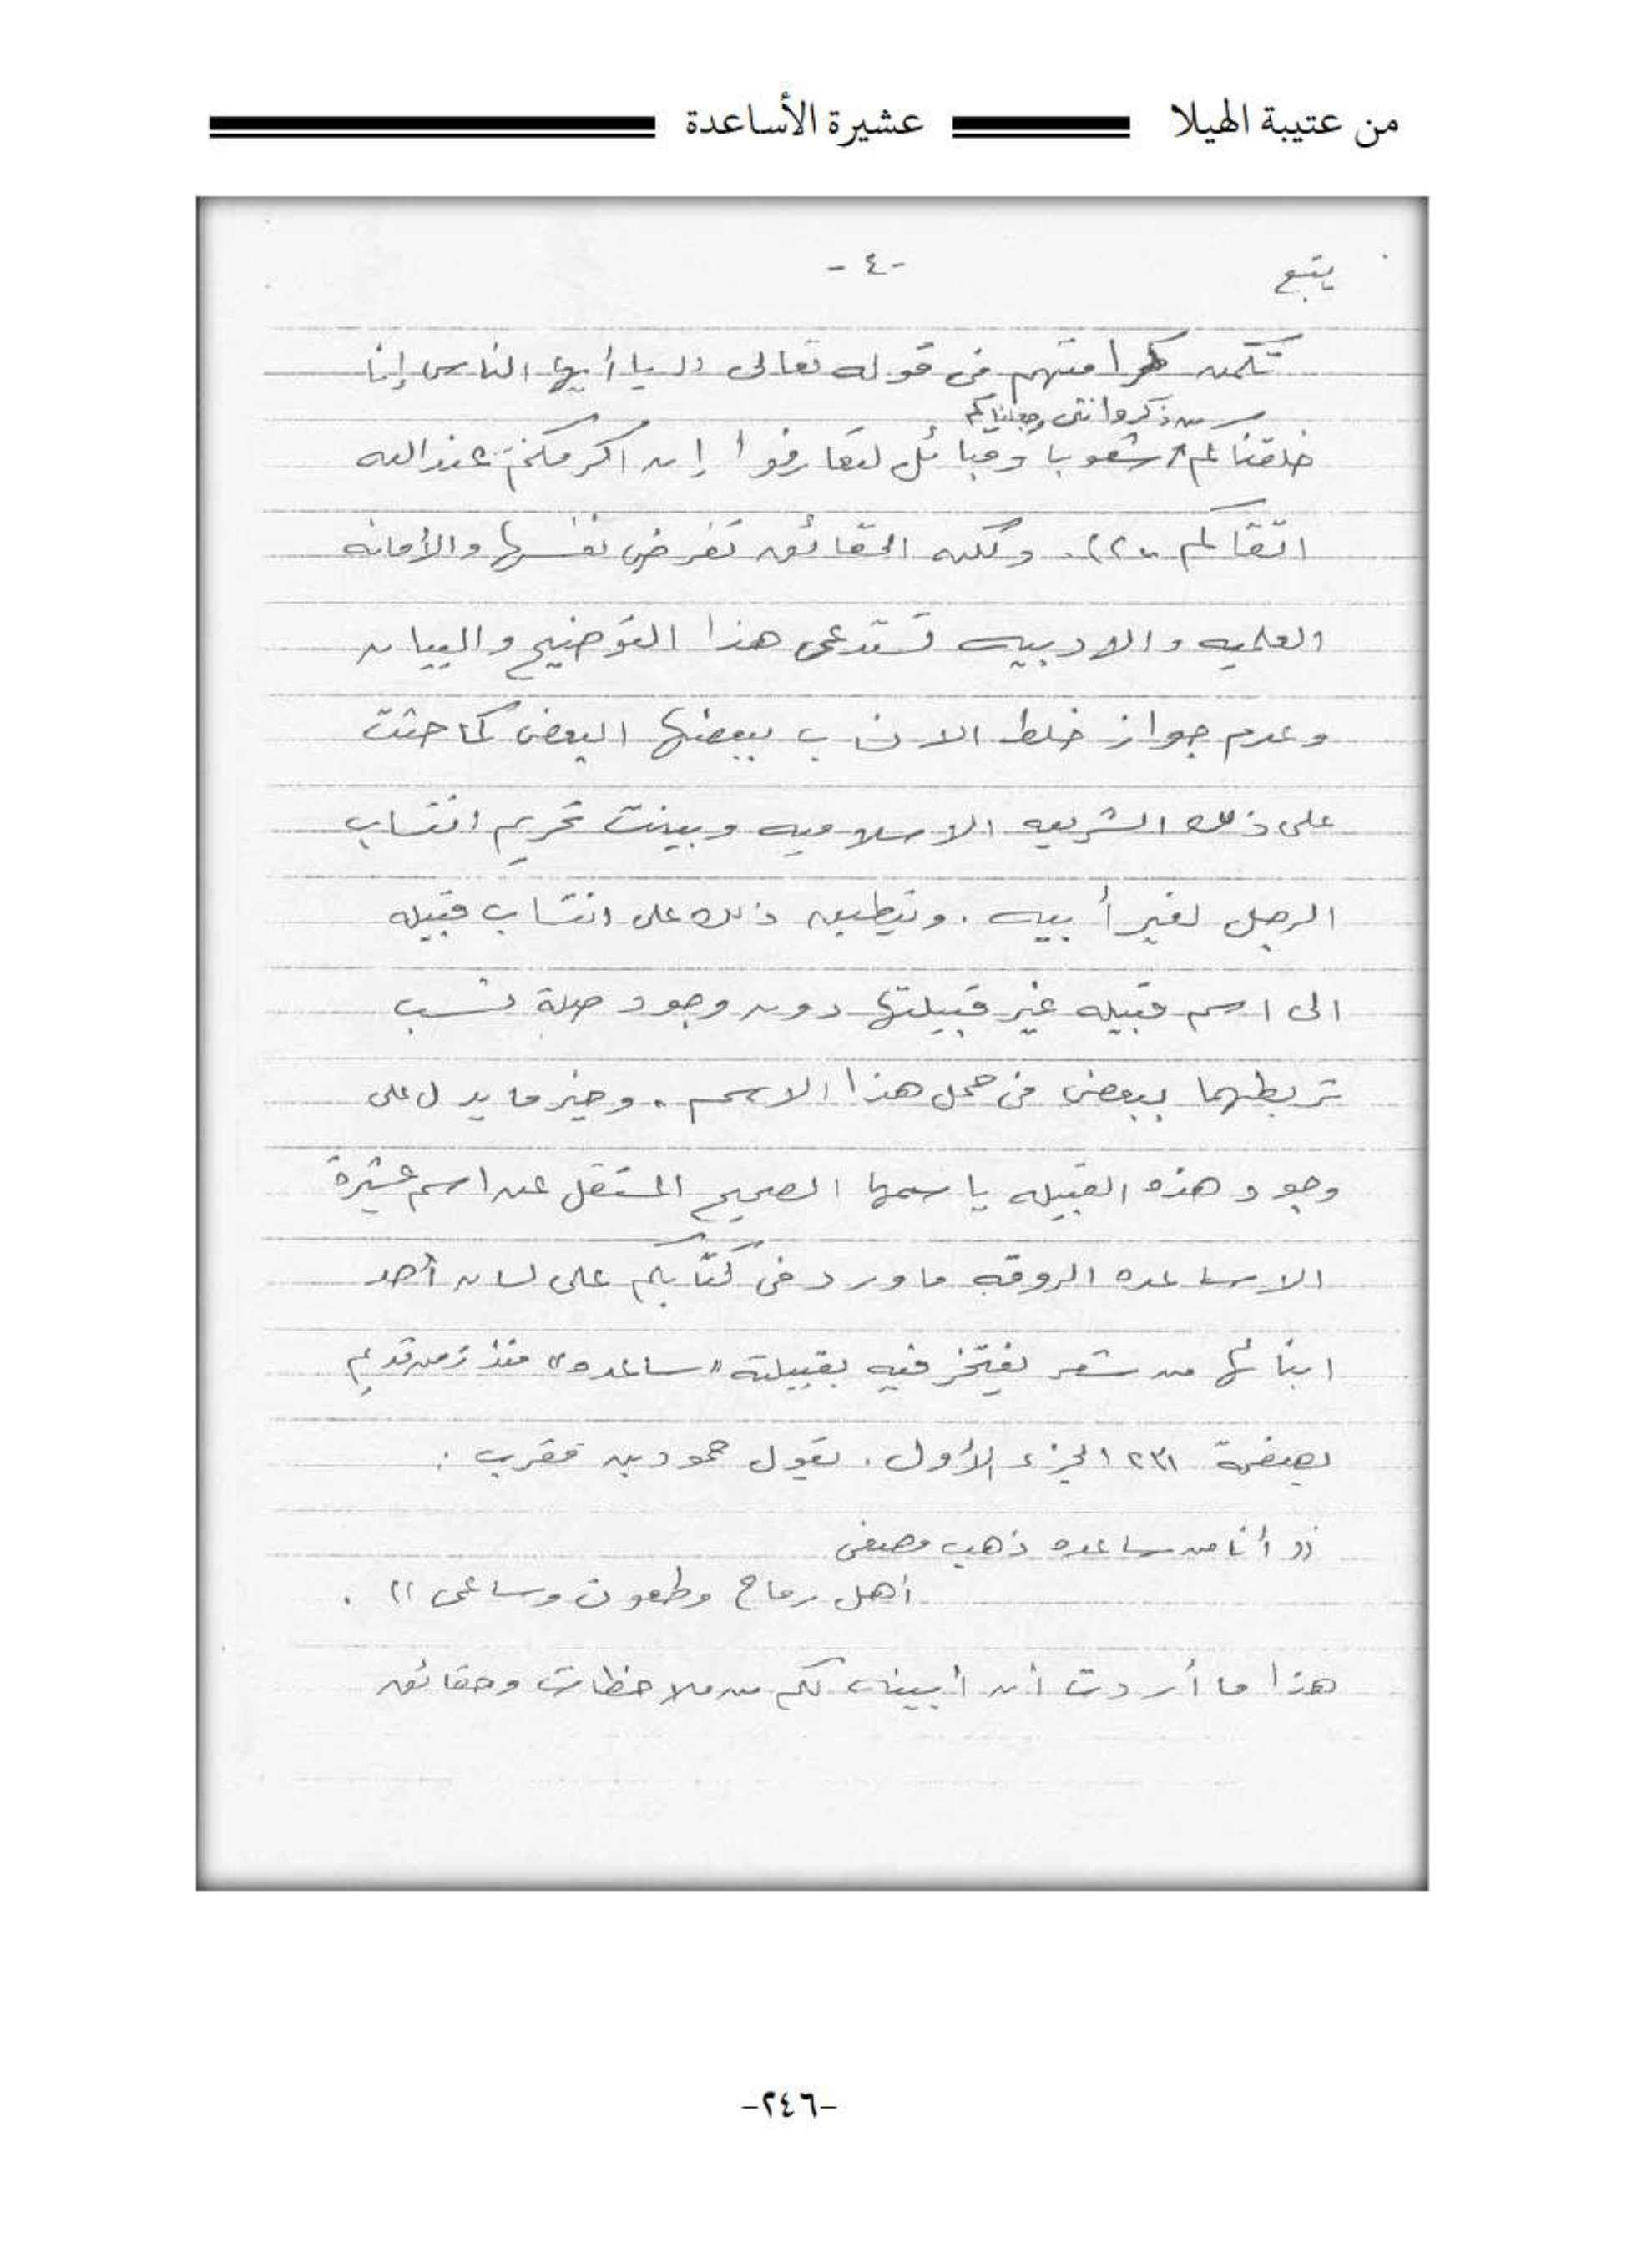 من عتيبة الهيلا
عشيرة الأساعدة
يتبع
-٤-
تكمن كرامتهم في قوله تعالى «يا أيها الناس إنا
من ذكر وانثى وجعلناكم
خلقناكم شعوبا وقبائل لتعارفوا إن اكرمكم عند الله
اتقاكم». ولكن الحقائق تفرض نفسها والأمانه
العلميه والادبيه تستدعي هذا التوضيح والبيان
وعدم جواز خلط الانساب ببعضها البعض كما حثت
على ذلك الشريعه الاسلاميه وبينت تحريم انتساب
الرجل لغير أبيه . وينطبق ذلك على انتساب قبيله
الى اسم قبيله غير قبيلتها دون وجود صلة نسب
تربطهما ببعض في محل هذا الاسم . وخير ما يدل على
وجود هذه القبيله باسمها الصحيح المستقل عن اسم عشيرة
الاساعده الروقه ما ورد في كتابكم على لسان أحد
ابنائها من شعر يفتخر فيه بقبيلته "ساعده" منذ زمن قديم
بصفحة ٢٣١ الجزء الأول . يقول حمود بن مقرب :
« أنا من ساعده ذهب مصفى
أهل رماح وطعون وساعي » .
هذا ما أردت أن أبينه لكم من ملاحظات وحقائق
-٢٤٦-